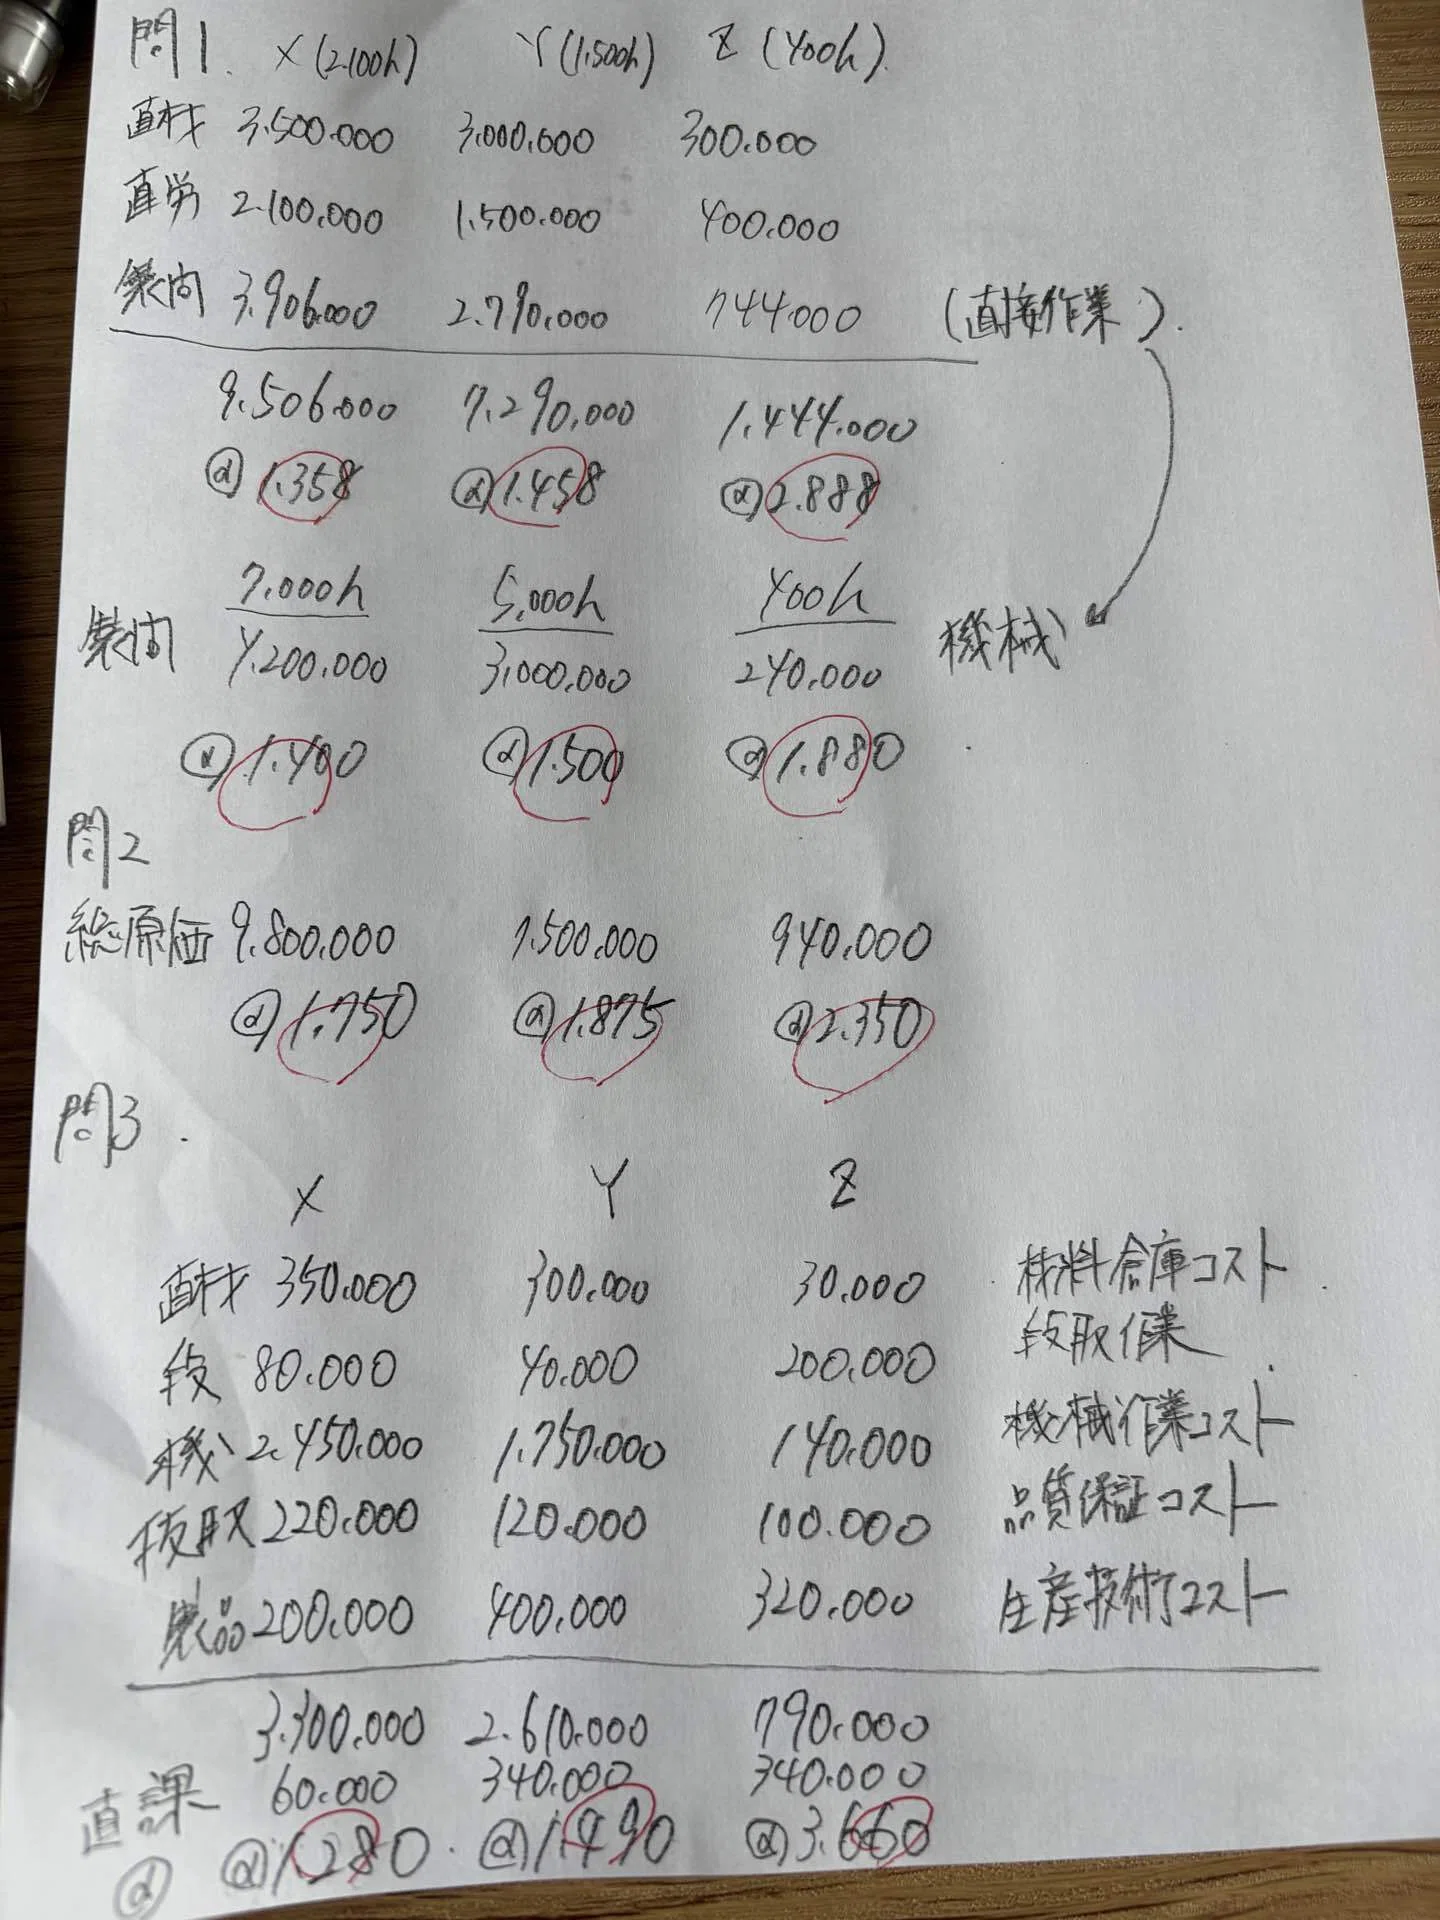 問1. X(2.100h) Y(1.500h) Z(400h).
直材 3.500.000 3.000.000 300.000
直労 2.100.000 1.500.000 400.000
製間 3.906.000 2.790.000 744.000 (直接作業).
9.506.000 7.290.000 1.444.000
@1.358 @1.458 @2.888
7.000h 5.000h 400h
製間 4.200.000 3.000.000 240.000 機械
@1.400 @1.500 @1.880
問2
総原価 9.800.000 7.500.000 940.000
@1.750 @1.875 @2.350
問3.
X Y Z
直材 350.000 300.000 30.000 材料倉庫コスト
段 80.000 40.000 200.000 段取作業
機 2.450.000 1.750.000 140.000 機械作業コスト
抜取 220.000 120.000 100.000 品質保証コスト
製品 200.000 400.000 320.000 生産技術コスト
3.300.000 2.610.000 790.000
直課 60.000 340.000 340.000
@ @1.280 @1.490 @3.660